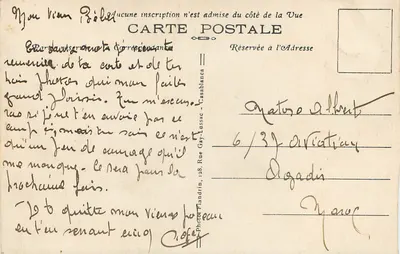 Mon vieux
Aucune inscription n'est admise du côté de la Vue
CARTE POSTALE
Réservée à l'Adresse
remercier de ta carte et de tes
trois photos qui m'ont fait
grand plaisir. Tu m'excuse-
ras si je ne t'en envoie pas ce
coup ci, mais tu sais ce n'est
qu'un peu de courage qu'il
me manque. Ce sera pour la
prochaine fois.
Je te quitte mon vieux
en t'en serrant cinq
Photo Flandrin, 128, Rue Gay-Lussac - Casablanca
Matoso Albert
6/37 Aviation
Agadir
Maroc